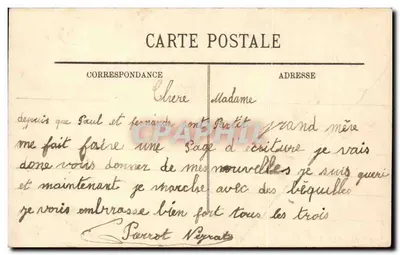 CARTE POSTALE
CORRESPONDANCE
ADRESSE
Chere Madame
depuis que Paul et fernande ont grand mère
me fait faire une Page d'écriture je vais
donc vous donner de mes nouvelles je suis gueri
et maintenant je marche avec des béquilles
je vous embrasse bien fort tous les trois
Parrot Neyrat